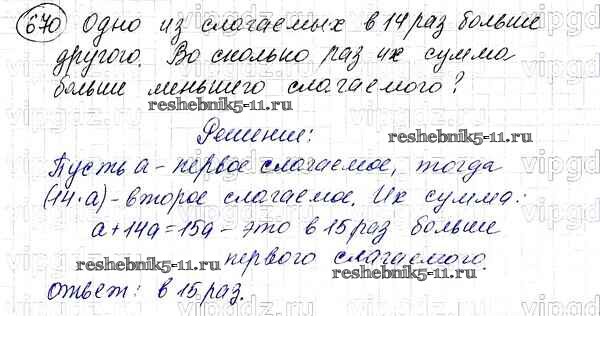 670 Одно из слагаемых в 14 раз больше
другого. Во сколько раз их сумма
больше меньшего слагаемого?
reshebnik5-11.ru
reshebnik5-11.ru
Решение:
Пусть а - первое слагаемое, тогда
(14·а) - второе слагаемое. Их сумма:
а+14а=15а - это в 15 раз больше
первого слагаемого.
reshebnik5-11.ru
reshebnik5-11.ru
Ответ: в 15 раз.
vipgdz.ru